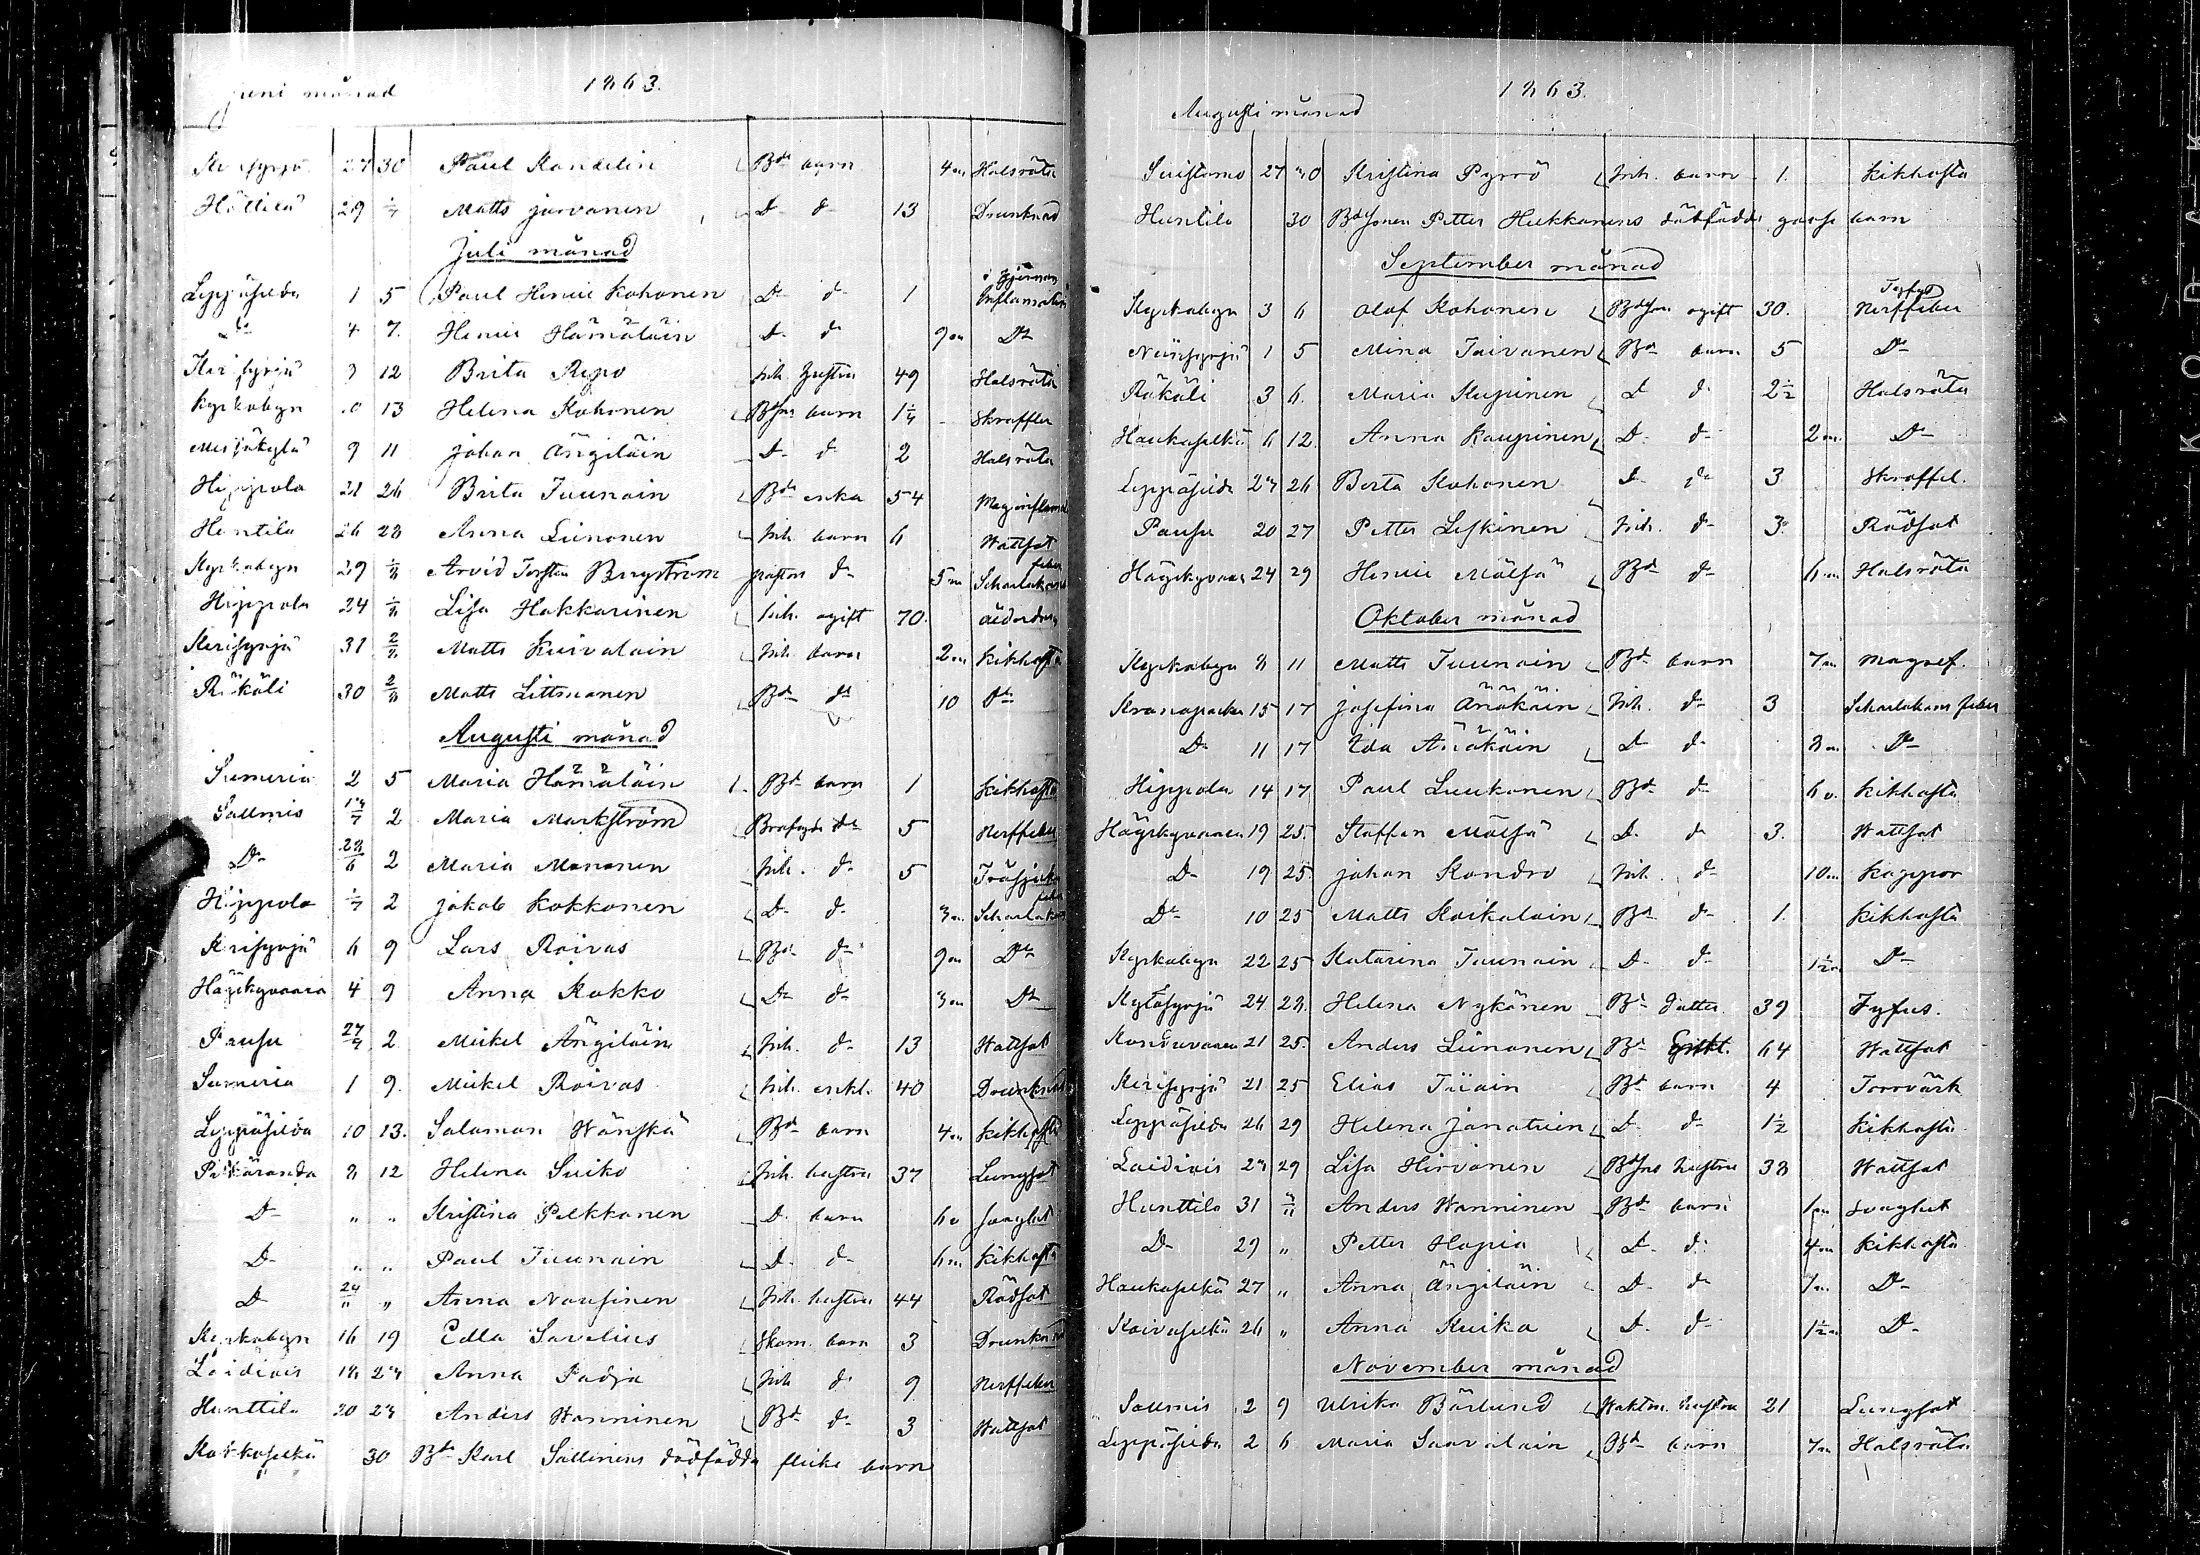 1863.
Juni månad
27 30 Paul Kandelin Bde barn 4 m Halsröta
Hottila 29 1/7 Matts Jarvanen D d 13 Drunknad
Juli månad
Leppäselkä 1 5 Paul Henric Kohonen D d 1 i hjernan Inflamation
D 4 7. Henric Hämäläin D d 9 m D
Kerisyrjä 3 12 Brita Repo Inh. hustru 49 Halsröta
Kyrkobyn 10 13 Helena Kohonen Bdsns barn 1 1/4 Skroffler
9 11 Johan Ängiläin D d 2 Halsröta
Hippola 21 26 Brita Juunain Bde enka 54 Maginflam
Huntila 26 28 Anna Liinanen Inh. barn 6 Wattsot
Kyrkobyn 29 1/8 Arvid Torsten Bergström pastors d 5 m Scharlakans feber
Hippola 24 1/8 Lisa Hakkarinen Inh. ogift 70. ålderdom
Kerisyrjä 31 2/8 Matts Kuivalain Inh. barn 2 m Kikhosta
Räkäli 30 2/8 Matts Littmanen Bde d 10 D
Augusti månad
Sumeria 2 5 Maria Hämäläin Bde barn 1 Kikhosta
Salmis 18/7 2 Maria Markström d 5 Nerffeber
D 28/6 2 Maria Mononen Inh. d 5
Hippola 1/7 2 Jakob Kokkonen D d 3 m Scharlakans feber
Kerisyrjä 6 9 Lars Roivas Bde d 9 m D
Häyskyvaara 4 9 Anna Kokko D d 3 m D
Pausu 27/7 2. Mickel Ängiläin Inh. d 13 Wattsot
Sumeria 1 9. Mickel Roivas Inh. enkl. 40 Drunknad
Leppäselkä 10 13. Salaman Wänskä Bde barn 4 m Kikhosta
Pitkäranda 8 12 Helena Suiko Inh. hustru 37 Lungsot
D " " Kristina Pekkanen D barn 6 v svaghet
D " " Paul Juunain D d 6 m Kikhosta
D 24/" " Anna Nousinen Inh. hustru 44 Rödsot
Kyrkobyn 16 19 Edla Savelius Skom. barn 3 Drunknad
Loidiois 18 23 Anna Padja Inh d 9 Nerffeber
Hunttila 20 23 Anders Wanninen Bd d 3 Wattsot
Kokkoselkä 30 Bde Karl Sallinens dödfödda flicke barn
1863.
Augusti månad
Suistamo 27 30 Kristina Pyrrö Inh. barn 1. Kikhosta
Huntila 30 Bdsonen Petter Hukkanens dödfödda gosse barn
September månad
Kyrkobyn 3 6 Olof Kohonen Bdeson ogift 30. Tyfus Nerffeber
1 5 Mina Toivanen Bde barn 5 D
Räkäli 3 6. Maria Kupinen D d 2 1/2 Halsröta
Haukaselkä 6 12. Anna Kaupinen D d 2 m. D
Leppäselkä 23 26 Berta Kohonen D d 3 Skroffel.
Pausu 20 27 Petter Leskinen Inh. d 3. Rödsot
Häyskyvaara 24 29 Henric Mölsä Bd d 6 m Halsröta
Oktober månad
Kyrkobyn 8 11 Matts Juunain Bd barn 7 m magref.
15 17 Josefina Änäkäin Inh. d 3 Scharlakans feber
D 11 17 Ida Änäkäin D d 8 m D
Hippola 14 17 Paul Luukonen Bd d 6 v. Kikhosta
Häyskyvaara 19 25. Staffan Mölsä D d 3. Wattsot
D 19 25. Johan Kondro Inh. d 10 m Koppor
D 10 25 Matts Koikalain Bd d 1. Kikhosta
Kyrkobyn 22 25 Katarina Juunain D d 1 1/2 m D
Kytösyrjä 24. 28. Helena Nykänen Bd dotter. 39 Tyfus.
Konduvaara 21 25. Anders Liinanen Bd 64 Wattsot
Kerisyrjä 21 25 Elias Tiiain Bd barn 4 Torrvärk
Leppäselkä 26 29 Helena Janatuin D d 1 1/2 Kikhosta
Loidiois 23 29 Lisa Hirvonen Bdsns hustru 38 Wattsot
Hunttila 31 3/11 Anders Wanninen Bd barn 1 m svaghet
D 29 " Petter Hapia D d 4 m Kikhosta
Haukaselkä 27 " Anna Ängiläin D d 7 m. D
Koivuselkä 26 " Anna Kuika D d 1 1/2 m D
November månad
Salmis 2 9 Ulrika Bärlund Waktm. hustru 21 Lungsot
Leppäselkä 2 6 Maria Saavalain Bd barn 7 m Halsröta
KODAK